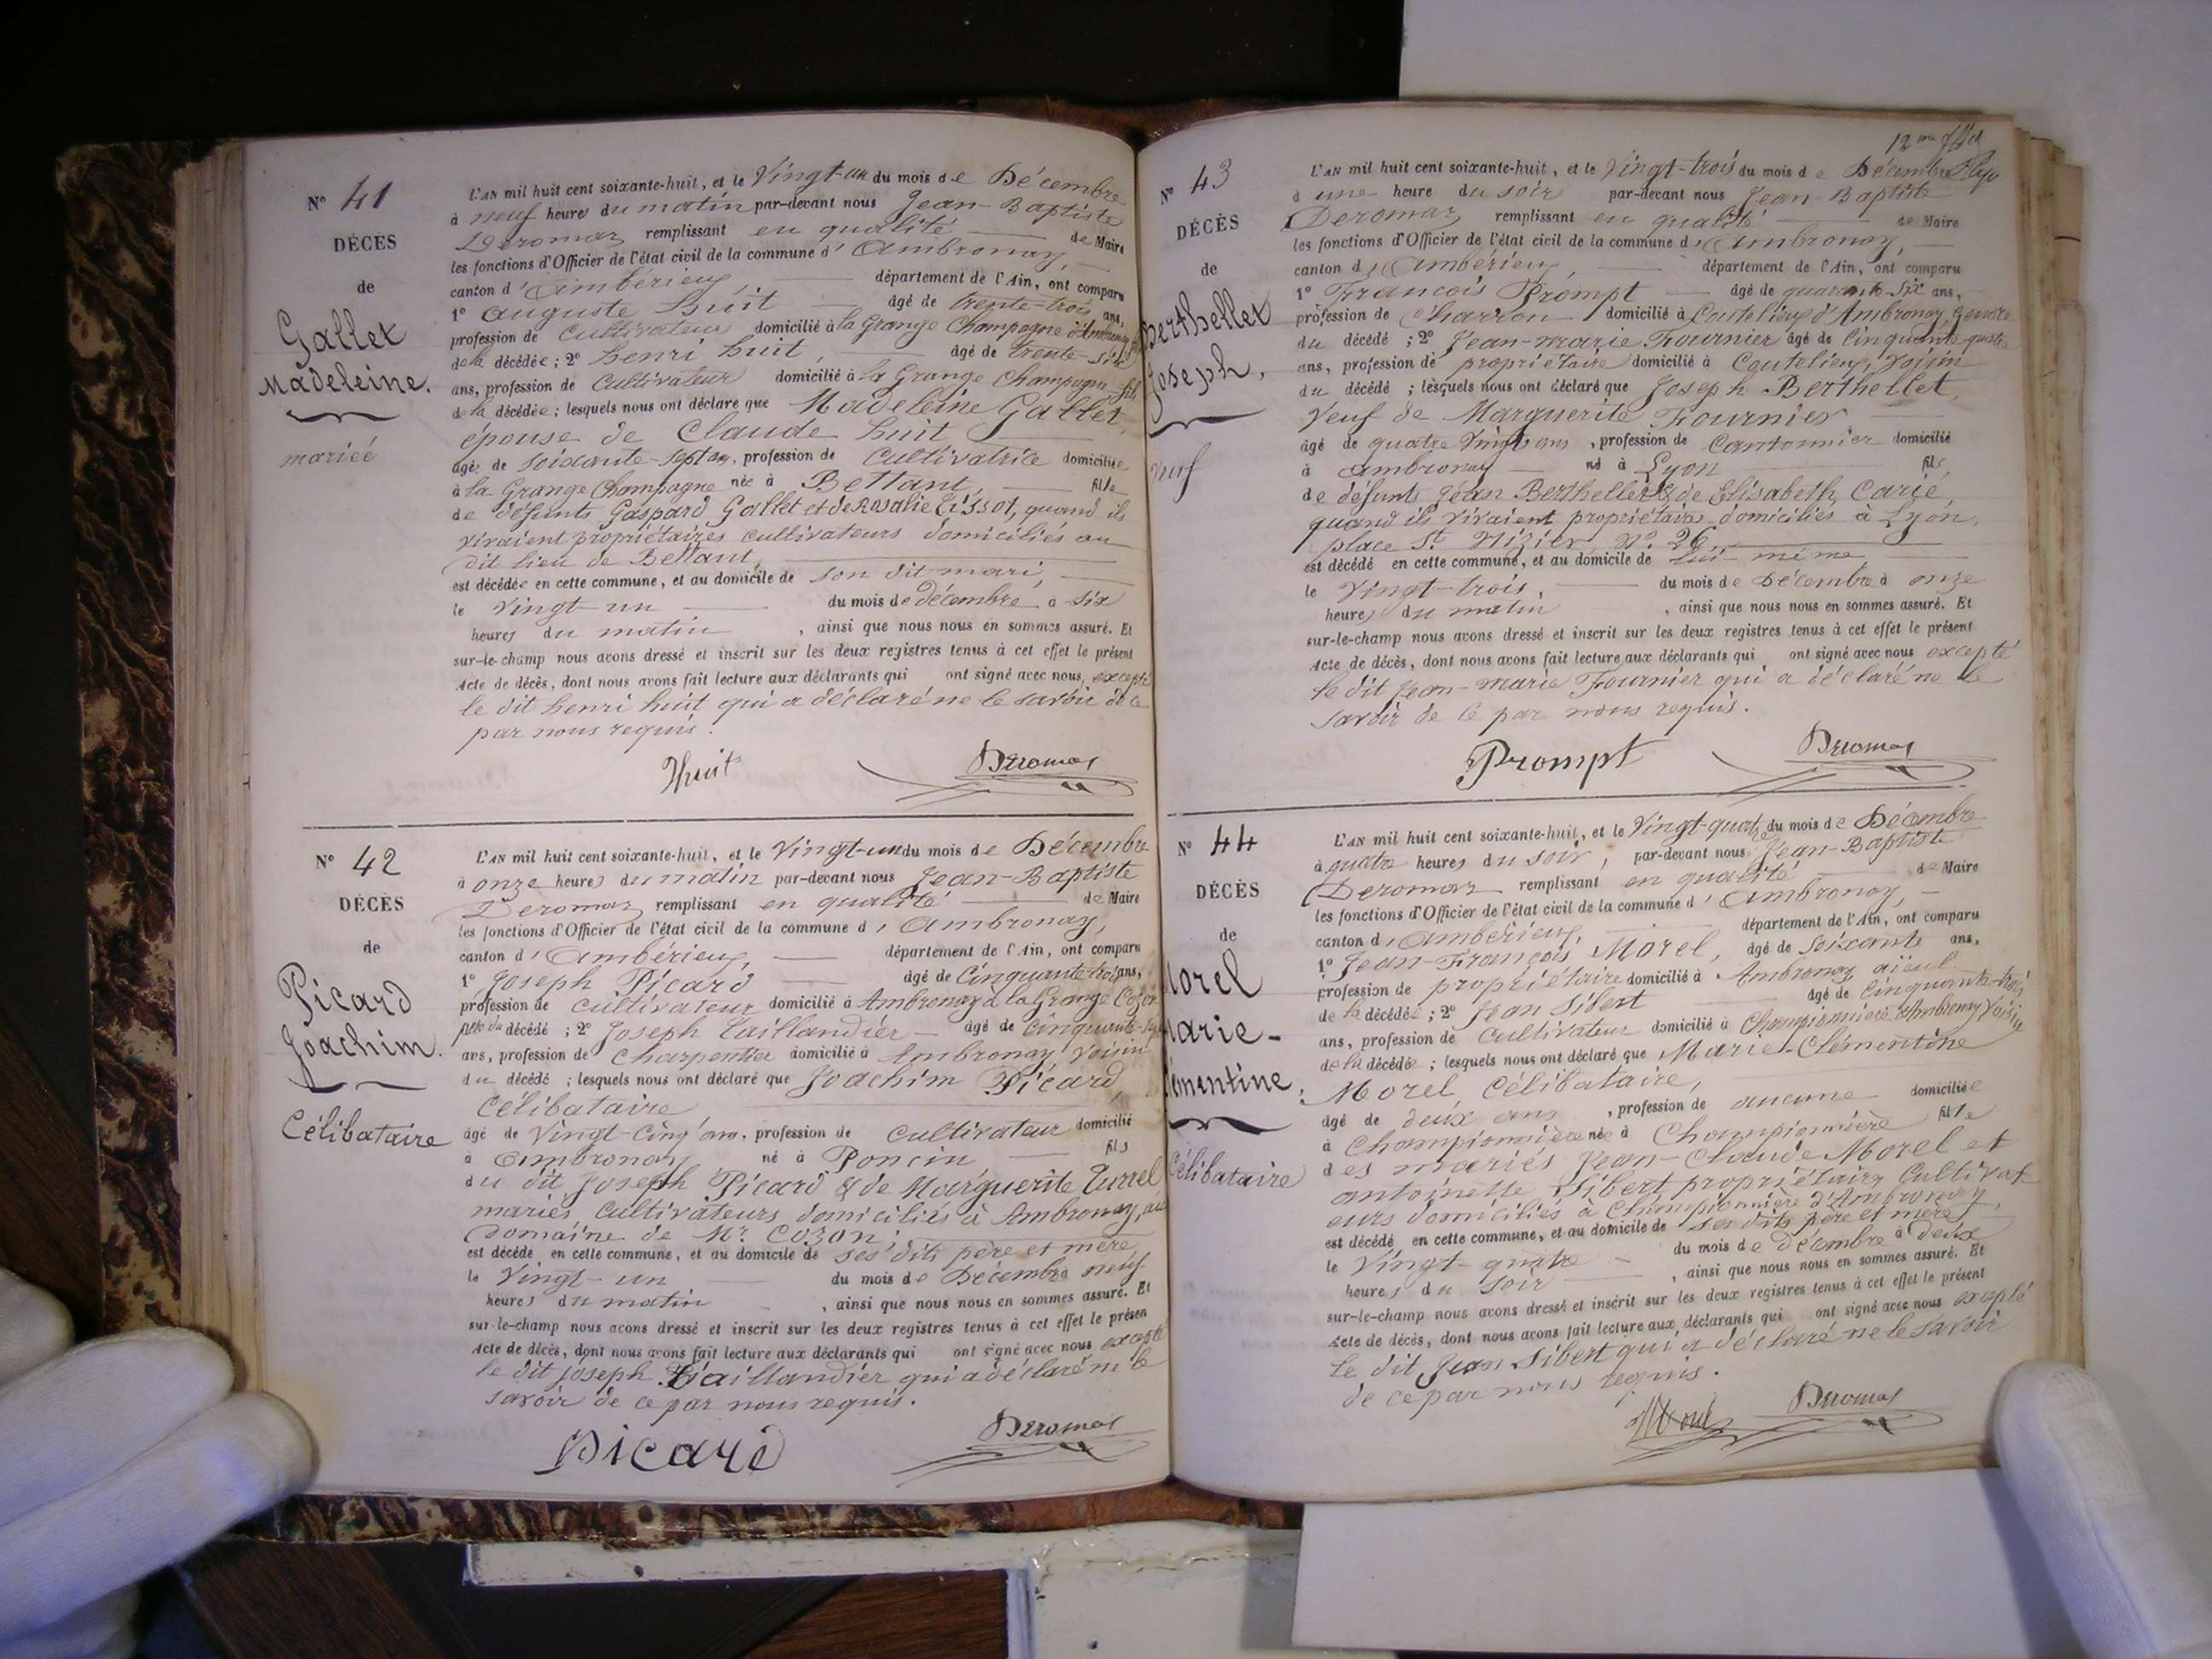 N° 41
DÉCÈS
de
Gallet
Madeleine.
mariée
L'AN mil huit cent soixante-huit, et le Vingt-un du mois de Décembre
à neuf heures du matin par-devant nous Jean-Baptiste
Deromas remplissant en qualité de Maire
les fonctions d'Officier de l'état civil de la commune d'Ambronay,
canton d'Ambérieux, département de l'Ain, ont comparu
1° Auguste Huit âgé de trente-trois ans,
profession de Cultivateur domicilié à la Grange Champagne d'Ambronay
de la décédée; 2° henri huit, âgé de trente-six
ans, profession de Cultivateur domicilié à la Grange Champagne fils
de la décédée; lesquels nous ont déclaré que Madeleine Gallet,
épouse de Claude huit
âgée de soidante-sept ans, profession de Cultivatrice domiciliée
à la Grange Champagne née à Bettant, fille
de défunts Gaspard Gallet et de Rosalie Tissot, quand ils
vivaient propriétaires cultivateurs domiciliés au
dit lieu de Bettant,
est décédée en cette commune, et au domicile de son dit mari,
le vingt-un du mois de décembre à six
heures du matin, ainsi que nous nous en sommes assuré. Et
sur-le-champ nous avons dressé et inscrit sur les deux registres tenus à cet effet le présent
Acte de décès, dont nous avons fait lecture aux déclarants qui ont signé avec nous, excepté
le dit henri huit qui a déclaré ne le savoir de ce
par nous requis.
Huit Deromas
N° 42
DÉCÈS
de
Picard
Joachim.
Célibataire
L'AN mil huit cent soixante-huit, et le Vingt-un du mois de Décembre
à onze heures du matin par-devant nous Jean-Baptiste
Deromas remplissant en qualité de Maire
les fonctions d'Officier de l'état civil de la commune d'Ambronay,
canton d'Ambérieux, département de l'Ain, ont comparu
1° Joseph Picard âgé de Cinquante-trois ans,
profession de cultivateur domicilié à Ambronay à la Grange Cozon
père du décédé; 2° Joseph Taillandier âgé de cinquante-
ans, profession de Charpentier domicilié à Ambronay voisin
du décédé; lesquels nous ont déclaré que Joachim Picard,
célibataire
âgé de Vingt-Cinq ans, profession de cultivateur domicilié
à Ambronay né à Poncin fils
du dit Joseph Picard & de Marguerite Turrel
mariés, cultivateurs domiciliés à Ambronay, au
Domaine de Mr. Cozon;
est décédé en cette commune, et au domicile de ses dits père et mère,
le Vingt-un du mois de Décembre neuf
heures du matin, ainsi que nous nous en sommes assuré. Et
sur-le-champ nous avons dressé et inscrit sur les deux registres tenus à cet effet le présen
Acte de décès, dont nous avons fait lecture aux déclarants qui ont signé avec nous excepté
le dit joseph Taillandier qui a déclaré ne le
savoir de ce par nous requis.
Picard Deromas
12me
N° 43
DÉCÈS
de
Berthellet
Joseph,
veuf
L'AN mil huit cent soixante-huit, et le Vingt-trois du mois de Décembre
à une heure du soir par-devant nous Jean-Baptiste
Deromas remplissant en qualité de Maire
les fonctions d'Officier de l'état civil de la commune d'Ambronay,
canton d'Ambérieux, département de l'Ain, ont comparu
1° François Prompt âgé de quarante-six ans,
profession de Charron domicilié à Coutelieux d'Ambronay, Gendre
du décédé; 2° Jean-marie Fournier âgé de Cinquante-quatre
ans, profession de propriétaire domicilié à Coutelieux, voisin
du décédé; lesquels nous ont déclaré que Joseph Berthellet,
veuf de Marguerite Fournier
âgé de quatre vingts ans, profession de Cantonnier domicilié
à Ambronay né à Lyon fils,
de défunts Jean Berthellet & de Elisabeth Carié,
quand ils vivaient propriétaires domiciliés à Lyon,
place St. Nizier, N° 26
est décédé en cette commune, et au domicile de lui-même
le Vingt-trois, du mois de Décembre à onze
heures du matin, ainsi que nous nous en sommes assuré. Et
sur-le-champ nous avons dressé et inscrit sur les deux registres tenus à cet effet le présent
Acte de décès, dont nous avons fait lecture aux déclarants qui ont signé avec nous excepté
le dit Jean-marie Fournier qui a déclaré ne le
savoir de ce par nous requis.
Prompt Deromas
N° 44
DÉCÈS
de
Morel
Marie-
Clémentine,
Célibataire
L'AN mil huit cent soixante-huit, et le Vingt-quatre du mois de Décembre
à quatre heures du soir, par-devant nous Jean-Baptiste
Deromas remplissant en qualité de Maire
les fonctions d'Officier de l'état civil de la commune d'Ambronay,
canton d'Ambérieux, département de l'Ain, ont comparu
1° Jean-François Morel, âgé de soixante ans,
profession de propriétaire domicilié à Ambronay aïeul
de la décédée; 2° Jean Sibert âgé de Cinquante-trois
ans, profession de Cultivateur domicilié à Championnière d'Ambronay Voisin
de la décédée; lesquels nous ont déclaré que Marie-Clémentine
Morel, Célibataire,
âgé de deux ans, profession de aucune domiciliée
à Championnière née à Championnière fille
des mariés Jean-Claude Morel et
Antoinette Sibert propriétaires Cultivat
eurs domiciliés à Championnière d'Ambronay,
est décédé en cette commune, et au domicile de ses dits père et mère
le Vingt-quatre du mois de décembre à deux
heures du soir, ainsi que nous nous en sommes assuré. Et
sur-le-champ nous avons dressé et inscrit sur les deux registres tenus à cet effet le présent
Acte de décès, dont nous avons fait lecture aux déclarants qui ont signé avec nous excepté
le dit Jean Sibert qui a déclaré ne le savoir
de ce par nous requis.
Morel Deromas